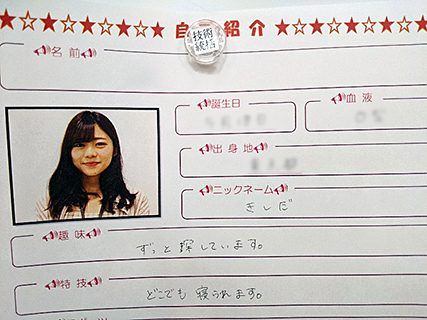 自己紹介
技術
統括
名前
誕生日
血液
出身地
ニックネーム
きしだ
趣味
ずっと探しています。
特技
どこでも寝られます。